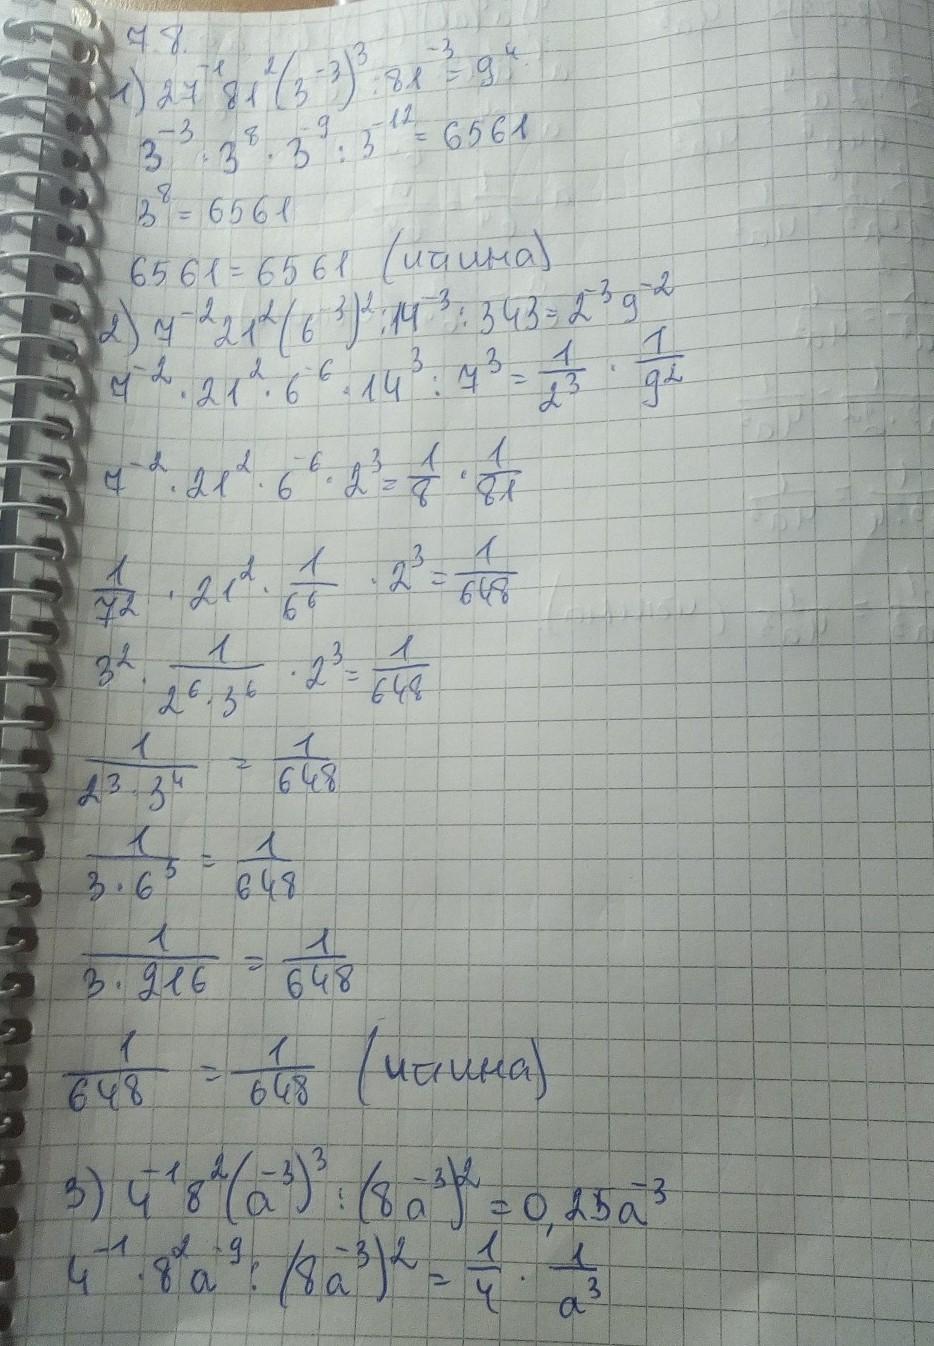 7.8.
1) 27⁻¹ 81² (3⁻³)³ : 81⁻³ = 9⁴
3⁻³ · 3⁸ · 3⁻⁹ : 3⁻¹² = 6561
3⁸ = 6561
6561 = 6561 (истина)
2) 7⁻² 21² (6⁻³)² : 14⁻³ : 343 = 2⁻³ 9⁻²
7⁻² · 21² · 6⁻⁶ · 14³ : 7³ = 1/2³ · 1/9²
7⁻² · 21² · 6⁻⁶ · 2³ = 1/8 · 1/81
1/7² · 21² · 1/6⁶ · 2³ = 1/648
3² · 1/(2⁶ · 3⁶) · 2³ = 1/648
1/(2³ · 3⁴) = 1/648
1/(3 · 6³) = 1/648
1/(3 · 216) = 1/648
1/648 = 1/648 (истина)
3) 4⁻¹ 8² (a⁻³)³ : (8a⁻³)² = 0,25a⁻³
4⁻¹ · 8² a⁻⁹ : (8a⁻³)² = 1/4 · 1/a³